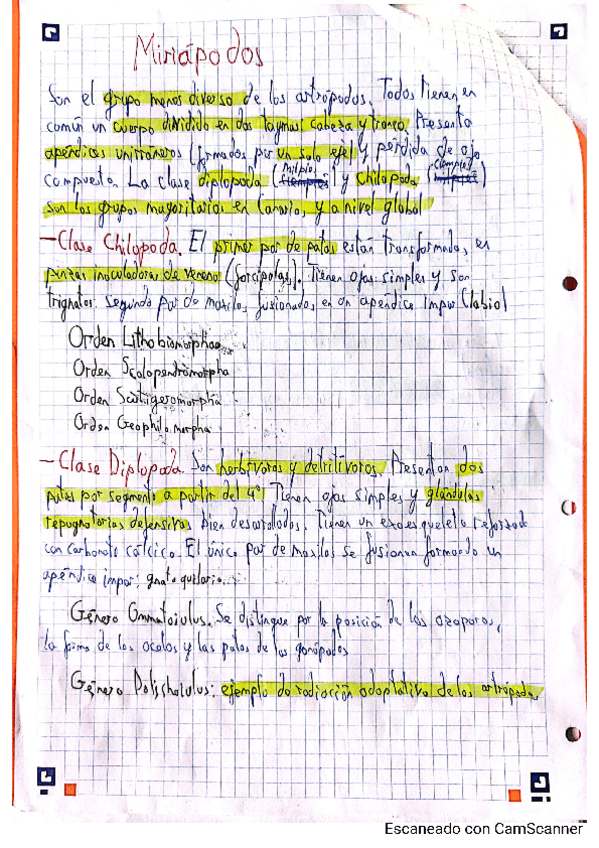 Miriápodos
Son el grupo menos diverso de los artrópodos. Todos tienen en
común un cuerpo dividido en dos tagmas: cabeza y tronco. Presenta
apéndices unirrámeos (formados por un solo eje) y pérdida de ojo
compuesto. La clase diplopoda (milpiés) y chilopoda (ciempiés)
son los grupos mayoritarios en Canarias y a nivel global
—Clase Chilopoda. El primer par de patas están transformadas en
pinzas inoculadoras de veneno (forcípulas). Tienen ojos simples y son
trignatos: segundo par de maxilas fusionadas en un apéndice impar (labio)
Orden Lithobiomorpha
Orden Scolopendromorpha
Orden Scutigeromorpha
Orden Geophilomorpha
—Clase Diplopoda. Son herbívoros y detritívoros. Presentan dos
patas por segmento a partir del 4º Tienen ojos simples y glándulas
repugnatorias defensivas bien desarrolladas. Tienen un exoesqueleto reforzado
con carbonato cálcico. El único par de maxilas se fusionan formando un
apéndice impar: gnatoquilario.
Género Ommatoiulus. Se distingue por la posición de los ozoporos,
la forma de los ocelos y las patas de los gonópodos
Género Dolichoiulus: ejemplo de radiación adaptativa de los artrópodos
Escaneado con CamScanner